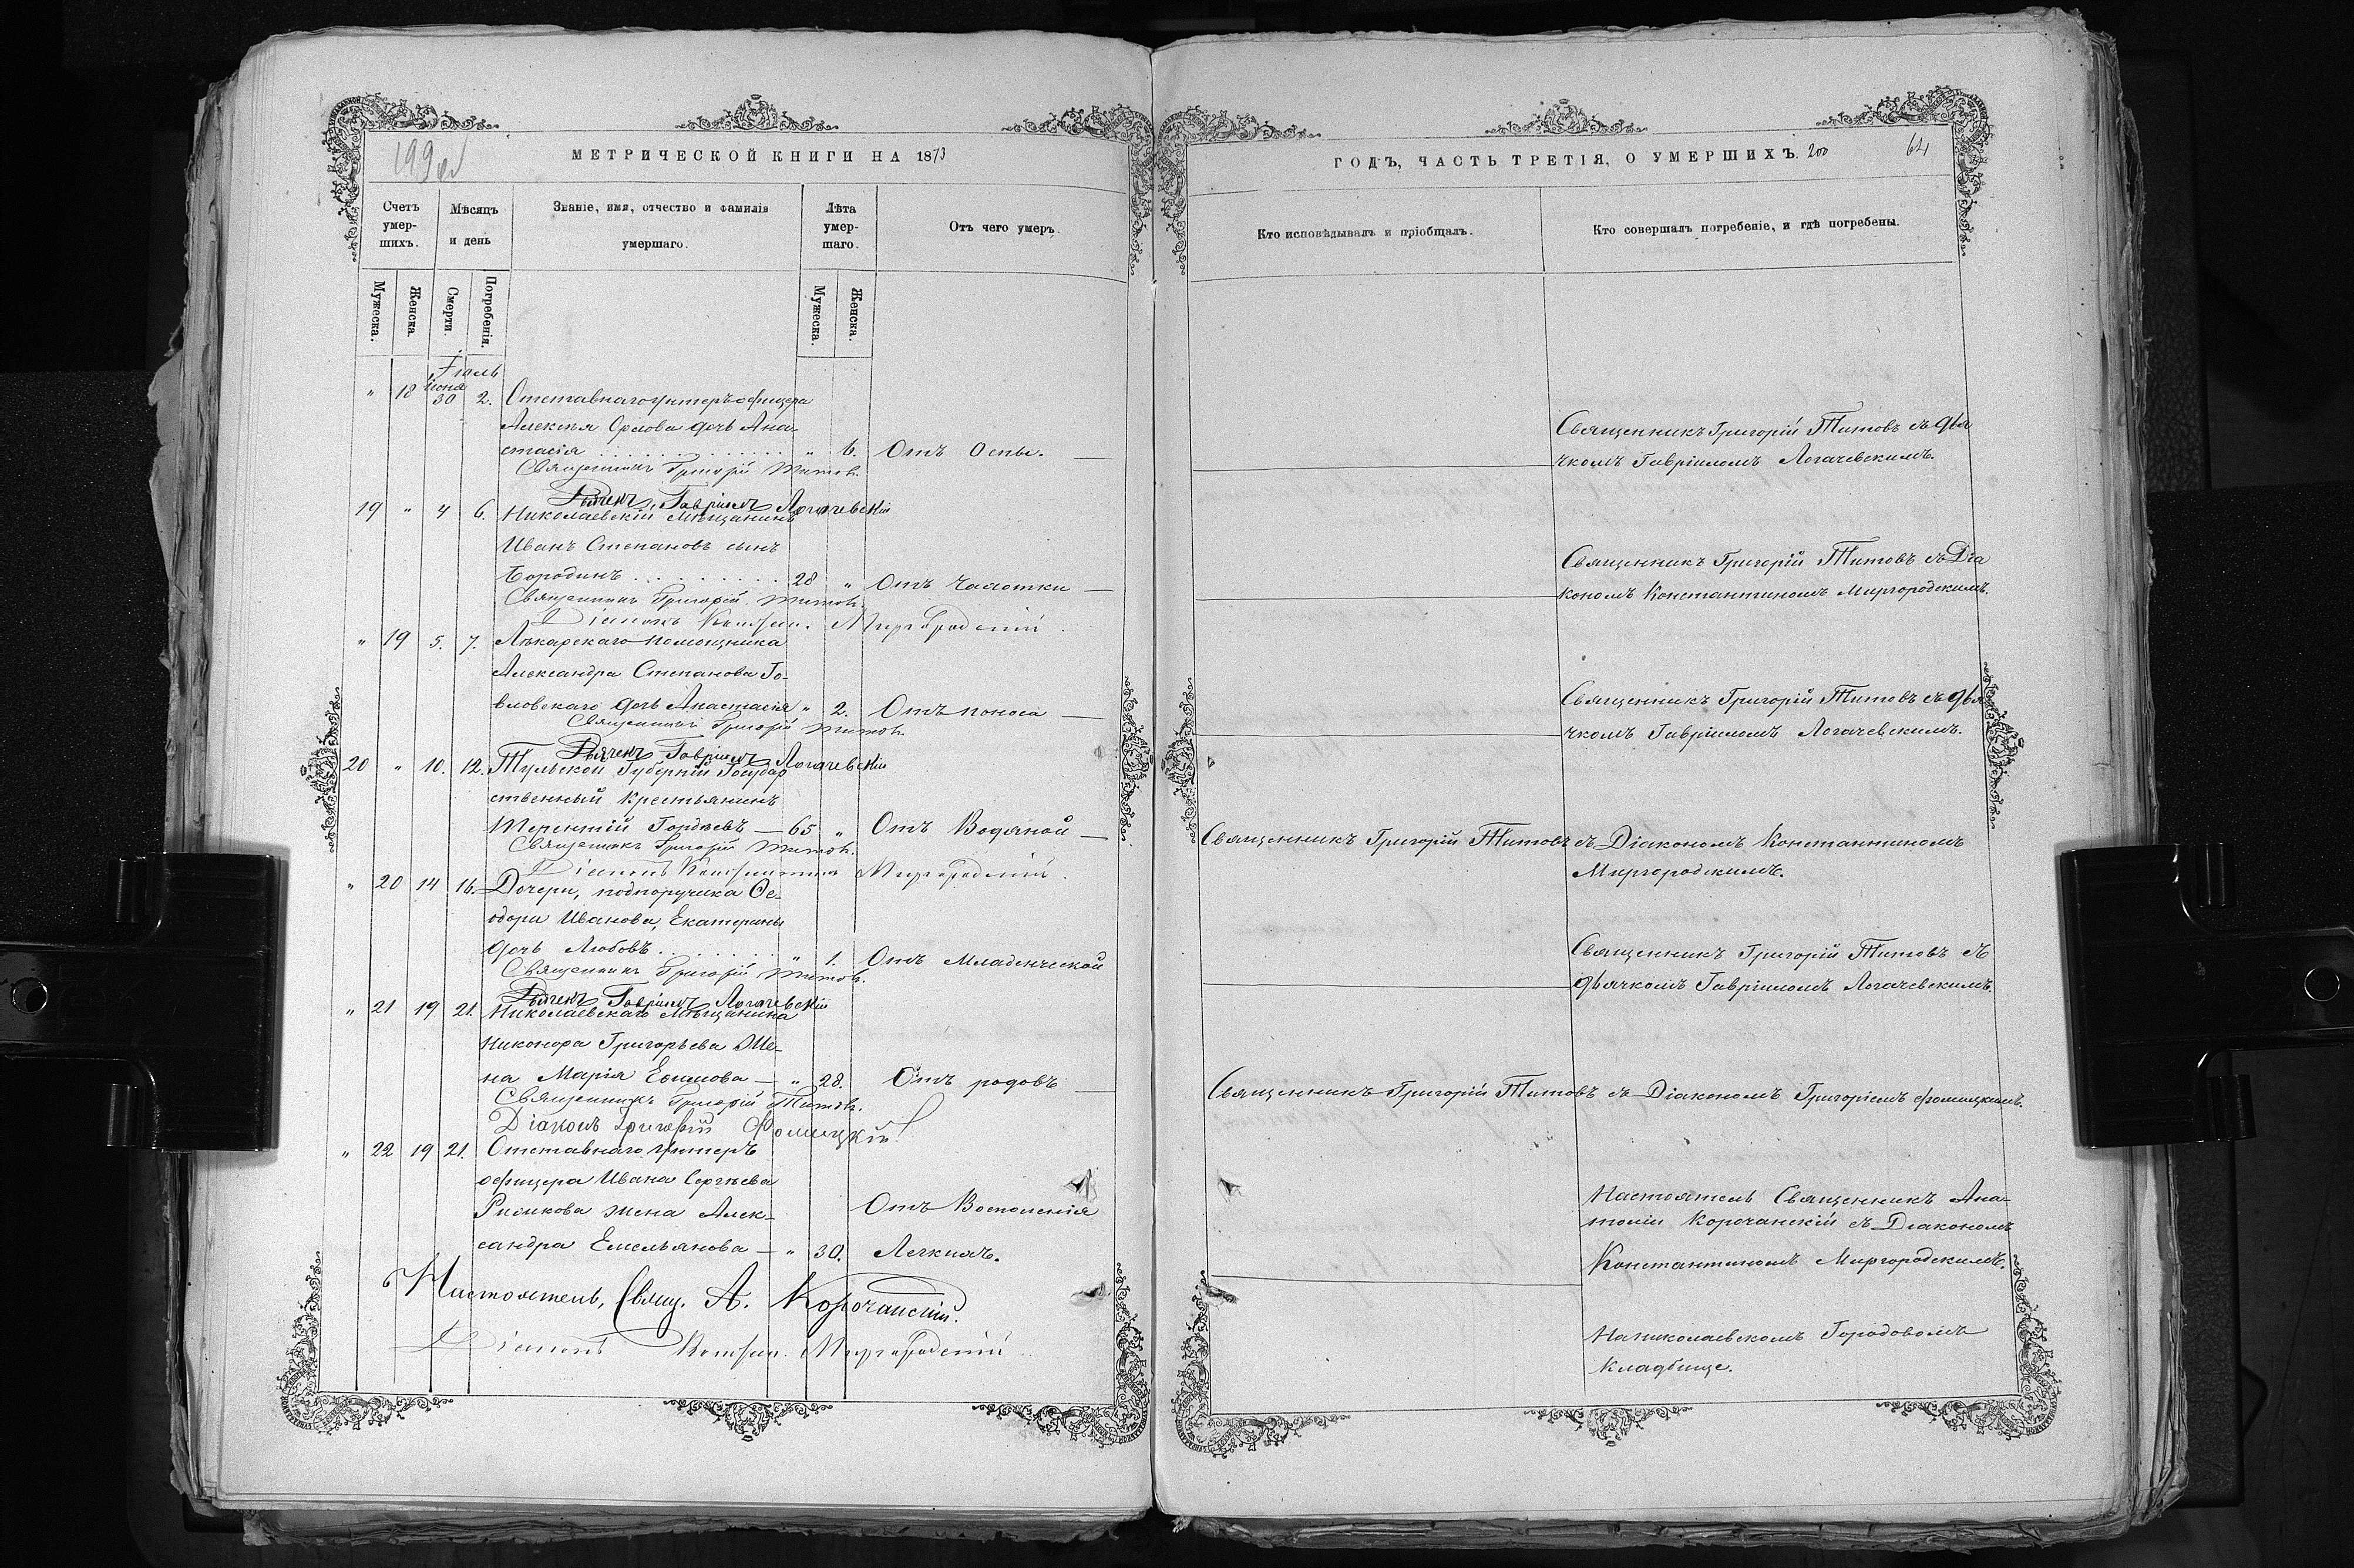 199об
МЕТРИЧЕСКОЙ КНИГИ НА 1873
Счетъ умер-шихъ.
Мѣсяцъ и день
Званіе, имя, отчество и фамилія умершаго.
Лѣта умер-шаго.
Отъ чего умеръ.
Мужеска.
Женска.
Смерти.
Погребенія.
Мужеска.
Женска.
Іюль
Іюня
" 18 30 2. Отставнаго унтеръ офицера
Алексѣя Орлова дочь Ана-
стасія " 6. Отъ Оспы.
Священникъ Григорій Титовъ.
Дьячекъ Гавріилъ Логачевскій
19 " 4 6. Николаевскій Мѣщанинъ
Иванъ Степановъ сынъ
Бородинъ 28 " Отъ Чахотки
Священникъ Григорій Титовъ.
Діаконъ Констан. Миргородскій.
" 19 5. 7. Лѣкарскаго помощника
Александра Степанова Го-
вловскаго дочь Анастасія " 2. Отъ поноса
Священникъ Григорій Титовъ.
Дьячекъ Гавріилъ Логачевскій
20 " 10. 12. Тульской Губерніи Государ
ственный крестьянинъ
Терентій Гордѣевъ 65 " Отъ Водяной
Священникъ Григорій Титовъ.
Діаконъ Константинъ Миргородскій.
" 20 14 16. Дочери, подпоручика Ѳе-
одора Иванова, Екатерины
дочь Любовь " 1. Отъ Младенческой
Священникъ Григорій Титовъ.
Дьячекъ Гавріилъ Логачевскій
" 21 19 21. Николаевскаго Мѣщанина
Никонора Григорьева Же-
на Марія Ефимова " 28. Отъ родовъ
Священникъ Григорій Титовъ.
Діаконъ Григорій Фомицкій
" 22 19 21. Отставнаго унтеръ
офицера Ивана Сергѣева
жена Алек-
сандра Емельянова " 30. Отъ Воспаленія
Легкихъ.
Настоятель, Свящ. А. Корочанскій.
Діаконъ Констан. Миргородскій
ГОДЪ, ЧАСТЬ ТРЕТІЯ, О УМЕРШИХЪ. 200
64
Кто исповѣдывалъ и пріобщалъ.
Кто совершалъ погребеніе, и гдѣ погребены.
Священникъ Григорій Титовъ съ дья
чкомъ Гавріиломъ Логачевскимъ.
Священникъ Григорій Титовъ съ Діа
кономъ Константиномъ Миргородскимъ.
Священникъ Григорій Титовъ съ дья
чкомъ Гавріиломъ Логачевскимъ.
Священникъ Григорій Титовъ съ Діакономъ Константиномъ
Миргородскимъ.
Священникъ Григорій Титовъ съ
дьячкомъ Гавріиломъ Логачевскимъ.
Священникъ Григорій Титовъ съ Діакономъ Григоріемъ Фомицкимъ.
Настоятель Священникъ Ана-
толій Корочанскій съ Діакономъ
Константиномъ Миргородскимъ.
На Николаевскомъ Городовомъ
Кладбище.